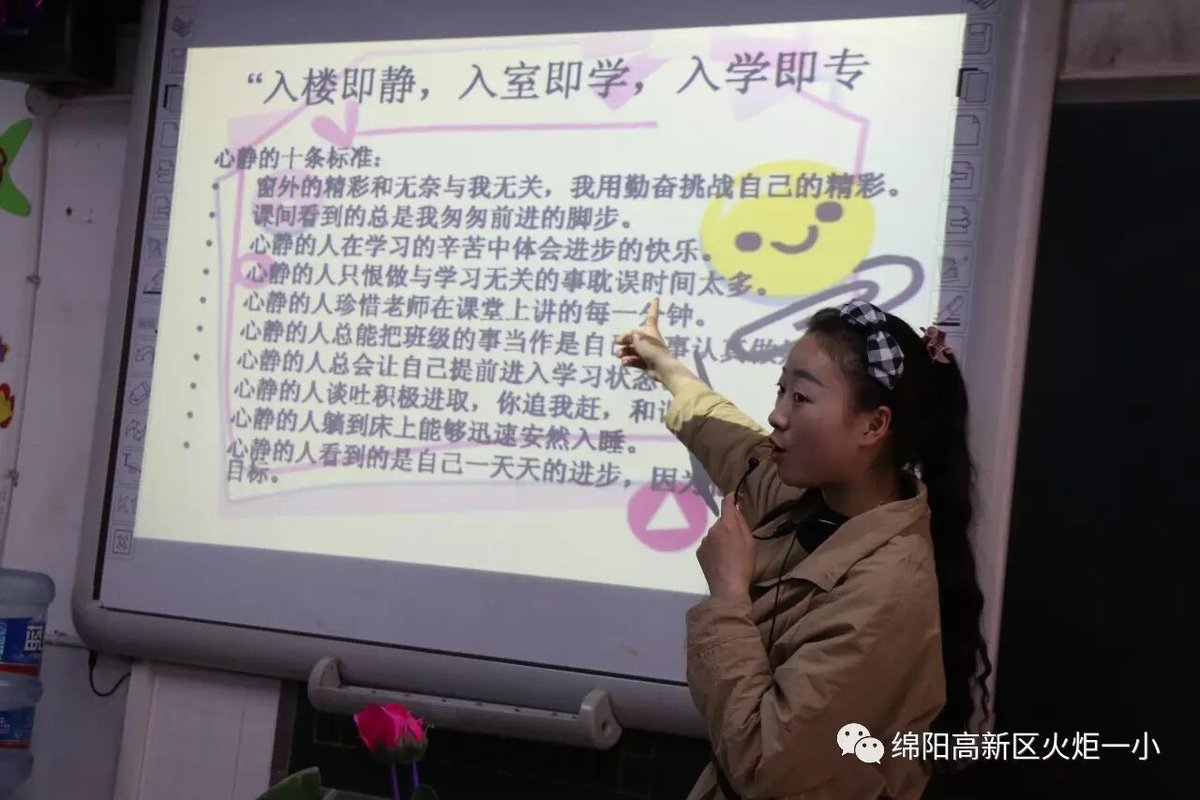 “入楼即静，入室即学，入学即专
心静的十条标准：
• 窗外的精彩和无奈与我无关，我用勤奋挑战自己的精彩。
• 课间看到的总是我匆匆前进的脚步。
• 心静的人在学习的辛苦中体会进步的快乐。
• 心静的人只恨做与学习无关的事耽误时间太多。
• 心静的人珍惜老师在课堂上讲的每一分钟。
• 心静的人总能把班级的事当作是自己 事认真做
• 心静的人总会让自己提前进入学习状态
• 心静的人谈吐积极进取，你追我赶，和
• 心静的人躺到床上能够迅速安然入睡。
• 心静的人看到的是自己一天天的进步，因为
目标。
蓝
绵阳高新区火炬一小